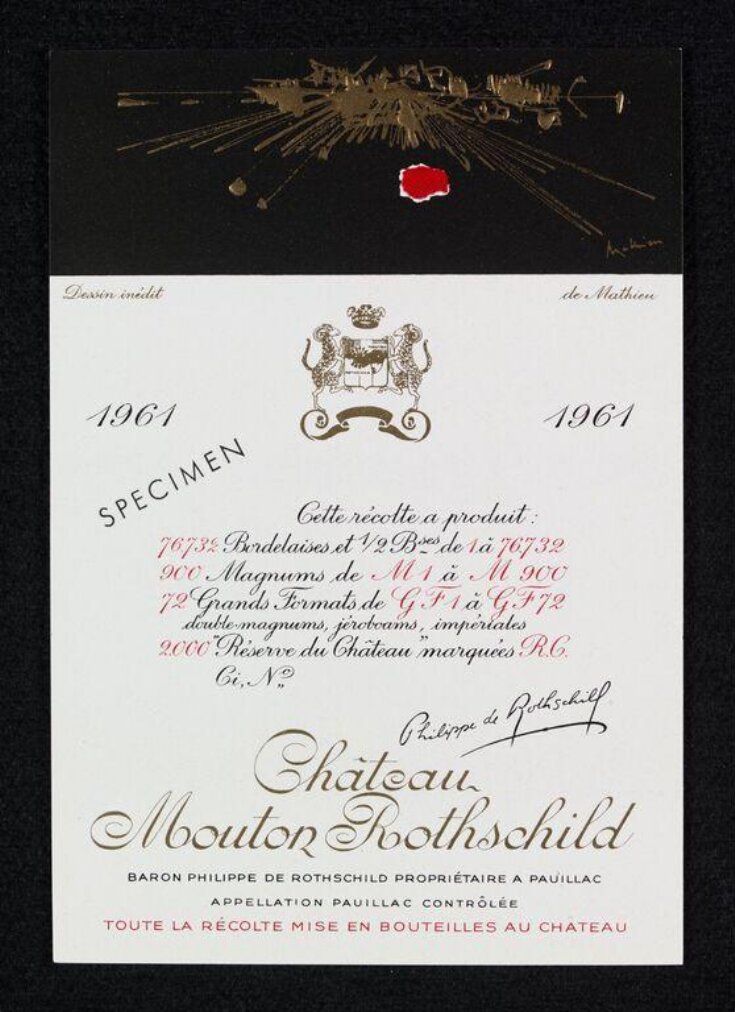 Mathieu
Dessin inédit
de Mathieu
1961
1961
SPECIMEN
Cette récolte a produit :
76732 Bordelaises et 1/2 Bses de 1 à 76732
900 Magnums de M 1 à M 900
72 Grands Formats de G F 1 à G F 72
double-magnums, jéroboams, impériales
2000 "Réserve du Château" marquées R.C.
Ci, Nº
Philippe de Rothschild
Château
Mouton Rothschild
BARON PHILIPPE DE ROTHSCHILD PROPRIÉTAIRE A PAUILLAC
APPELLATION PAUILLAC CONTRÔLÉE
TOUTE LA RÉCOLTE MISE EN BOUTEILLES AU CHATEAU